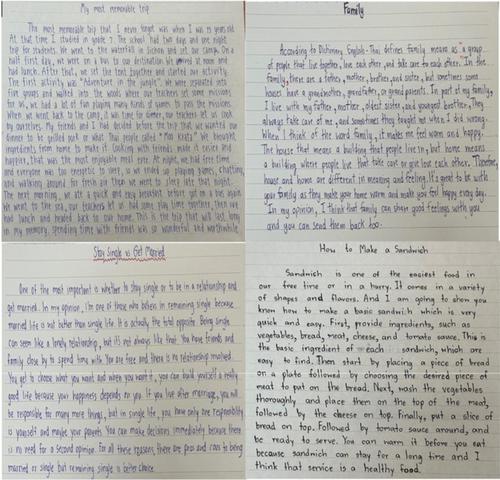 My most memorable trip
The most memorable trip that I never forget was when I was 15 years old
At that time I studied in grade 9. The school had two days and one night
trip for students. We went to the waterfall in Sichon and set our camp. On a
half first day, we went on a bus to our destination. We arrived at noon and
had lunch. After that, we set the tent together and started our activity.
The first activity was "Adventure in the jungle", we were separated into
five groups and walked into the woods where our teachers set some missions
for us, we had a lot of fun playing many kinds of games to pass the missions.
When we went back to the camp, it was time for dinner, our teachers let us cook
by ourselves. My friends and I had decided before the trip that we wanted our
dinner to be grilled pork or what Thai people called "Moo kata". We brought
ingredients from home to make it. Cooking with friends made it easier and
happier, that was the most enjoyable meal ever. At night, we had free time
and everyone was too energetic to sleep, so we ended up playing games, chatting,
and walking around for fresh air then we went to sleep late that night.
The next morning, we ate a quick and easy breakfast before got on a bus again.
We went to the sea, our teachers let us had some play time together, then we
had lunch and headed back to our home. This is the trip that will last long
in my memory, spending time with friends was so wonderful and worthwhile.
Family
According to Dictionary English-Thai defines family means as "a group
of people that live together, love each other, and take care to each other." In the
family, there are a father, mother, brother, and sister, but sometimes some
houses have a grandmother, grandfather, or grand parents. In part of my family,
I live with my father, mother, oldest sister, and youngest brother. They
always take care of me, and sometimes they taught me when I did wrong.
When I think of the word family, it makes me feel warm and happy.
The house that means a building that people live in, but home means
a building where people live that take care or give love each other. Therefore,
house and home are different in meaning and feeling. It's great to be with
your family as they make your home warm and make you feel happy every day.
In my opinion, I think that family can show good feelings with you
and you can send them back too.
Stay Single vs Get Married
One of the most important is whether to stay single or to be in a relationship and
get married. In my opinion, I'm one of those who believe in remaining single because
married life is not better than single life. It is actually the total opposite. Being single
can seem like a lonely relationship, but it's not always like that. You have friends and
family close by to spend time with. You are free and there is no relationship involved.
You get to choose what you want and when you want it, you can build yourself a really
good life because your happiness depends on you. If you live after marriage, you will
be responsible for many more things, but in single life, you have only one responsibility
is yourself and maybe your parents. You can make decisions immediately because there
is no need for a second opinion. For all these reasons, there are pros and cons to being
married or single but remaining single is better choice.
How to Make a Sandwich
Sandwich is one of the easiest food in
our free time or in a hurry. It comes in a variety
of shapes and flavors. And I am going to show you
know how to make a basic sandwich which is very
quick and easy. First, provide ingredients, such as
vegetables, bread, meat, cheese, and tomato sauce. This is
the basic ingredient of each sandwich, which are
easy to find. Then start by placing a piece of bread
on a plate followed by choosing the desired piece of
meat to put on the bread. Next, wash the vegetables
thoroughly, and place them on the top of the meat,
followed by the cheese on top. Finally, put a slice of
bread on top. Followed by tomato sauce around, and
be ready to serve. You can warm it before you eat
because sandwich can stay for a long time and I
think that service is a healthy food.